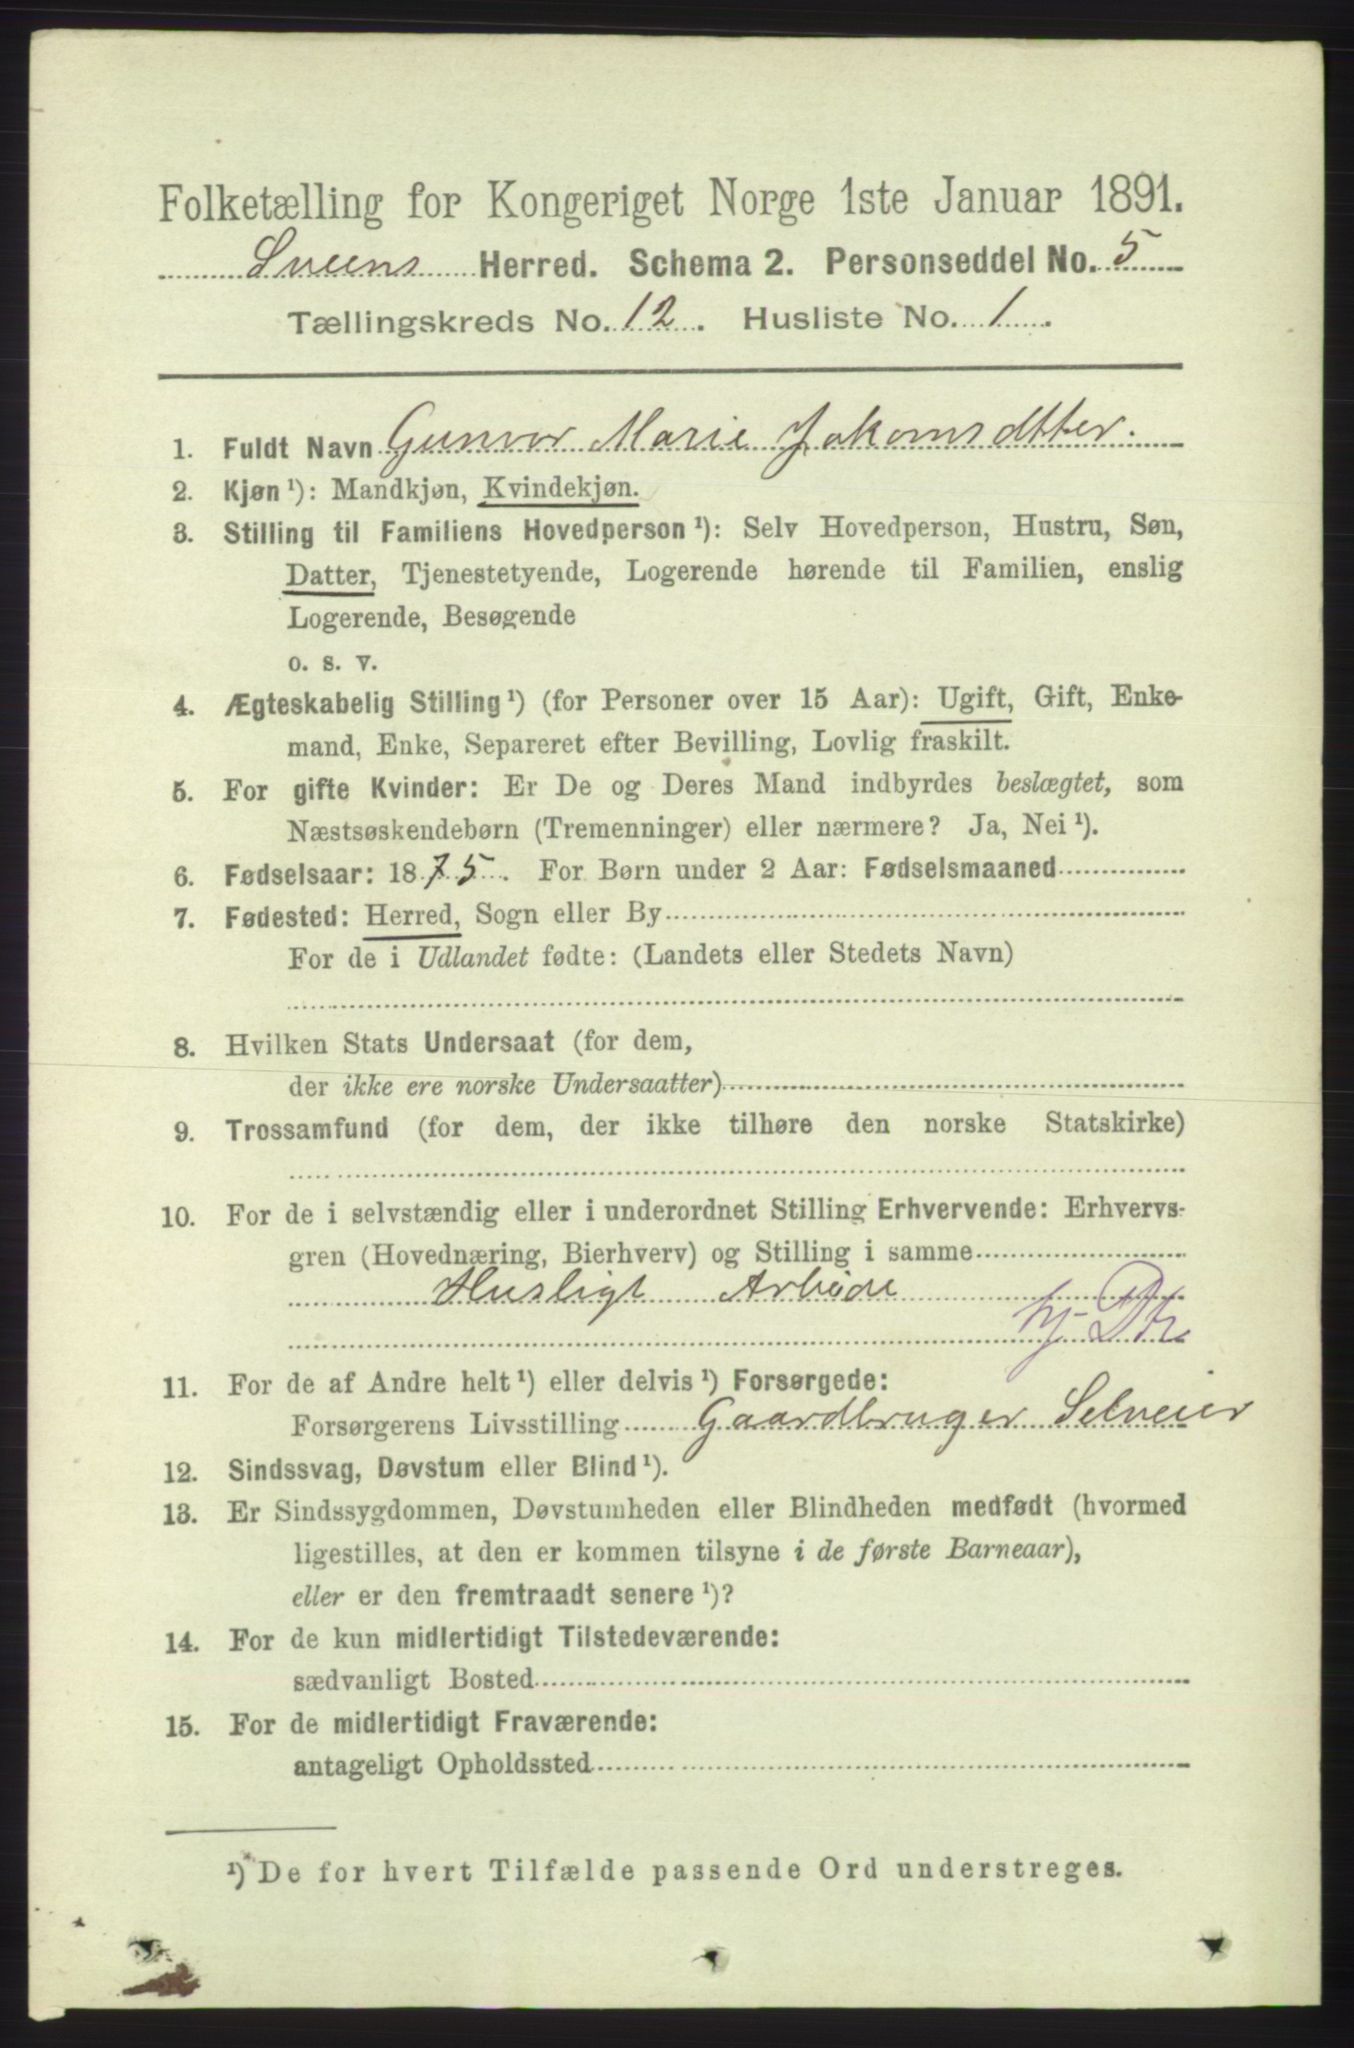 Folketælling for Kongeriget Norge 1ste Januar 1891.
Sveens Herred. Schema 2. Personseddel No. 5
Tællingskreds No. 12. Husliste No. 1.
1. Fuldt Navn Gunvor Marie Jakomsdtter.
2. Kjøn ¹): Mandkjøn, Kvindekjøn.
3. Stilling til Familiens Hovedperson ¹): Selv Hovedperson, Hustru, Søn,
Datter, Tjenestetyende, Logerende hørende til Familien, enslig
Logerende, Besøgende
o. s. v.
4. Ægteskabelig Stilling ¹) (for Personer over 15 Aar): Ugift, Gift, Enke-
mand, Enke, Separeret efter Bevilling, Lovlig fraskilt.
5. For gifte Kvinder: Er De og Deres Mand indbyrdes beslægtet, som
Næstsøskendebørn (Tremenninger) eller nærmere? Ja, Nei ¹).
6. Fødselsaar: 1875. For Børn under 2 Aar: Fødselsmaaned
7. Fødested: Herred, Sogn eller By
For de i Udlandet fødte: (Landets eller Stedets Navn)
8. Hvilken Stats Undersaat (for dem,
der ikke ere norske Undersaatter)
9. Trossamfund (for dem, der ikke tilhøre den norske Statskirke)
10. For de i selvstændig eller i underordnet Stilling Erhvervende: Erhvervs-
gren (Hovednæring, Bierhverv) og Stilling i samme
Husligt Arbeide
hj-Dtr
11. For de af Andre helt ¹) eller delvis ¹) Forsørgede:
Forsørgerens Livsstilling Gaardbruger Selveier
12. Sindssvag, Døvstum eller Blind ¹).
13. Er Sindssygdommen, Døvstumheden eller Blindheden medfødt (hvormed
ligestilles, at den er kommen tilsyne i de første Barneaar),
eller er den fremtraadt senere ¹)?
14. For de kun midlertidigt Tilstedeværende:
sædvanligt Bosted
15. For de midlertidigt Fraværende:
antageligt Opholdssted
¹) De for hvert Tilfælde passende Ord understreges.